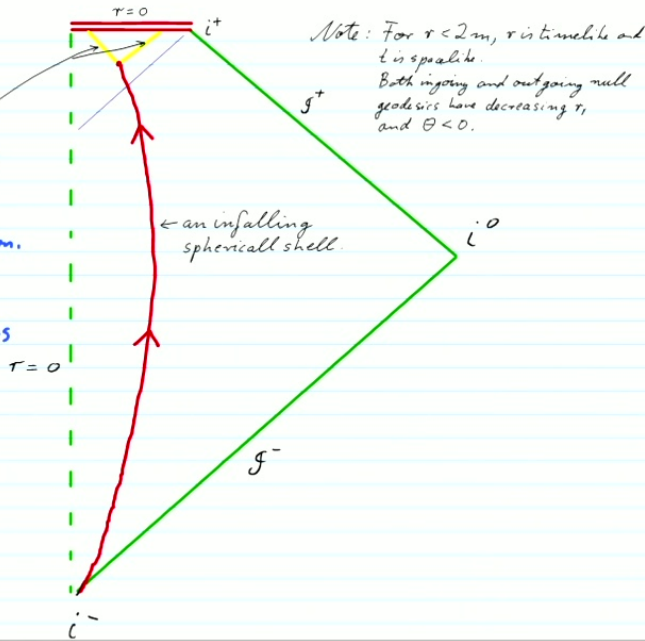 r=0
i⁺
Note: For r<2m, r is timelike and
t is spacelike.
Both ingoing and outgoing null
geodesics have decreasing r,
and Θ<0.
𝓘⁺
← an infalling
sphericall shell.
i⁰
m.
s
r=0
𝓘⁻
i⁻